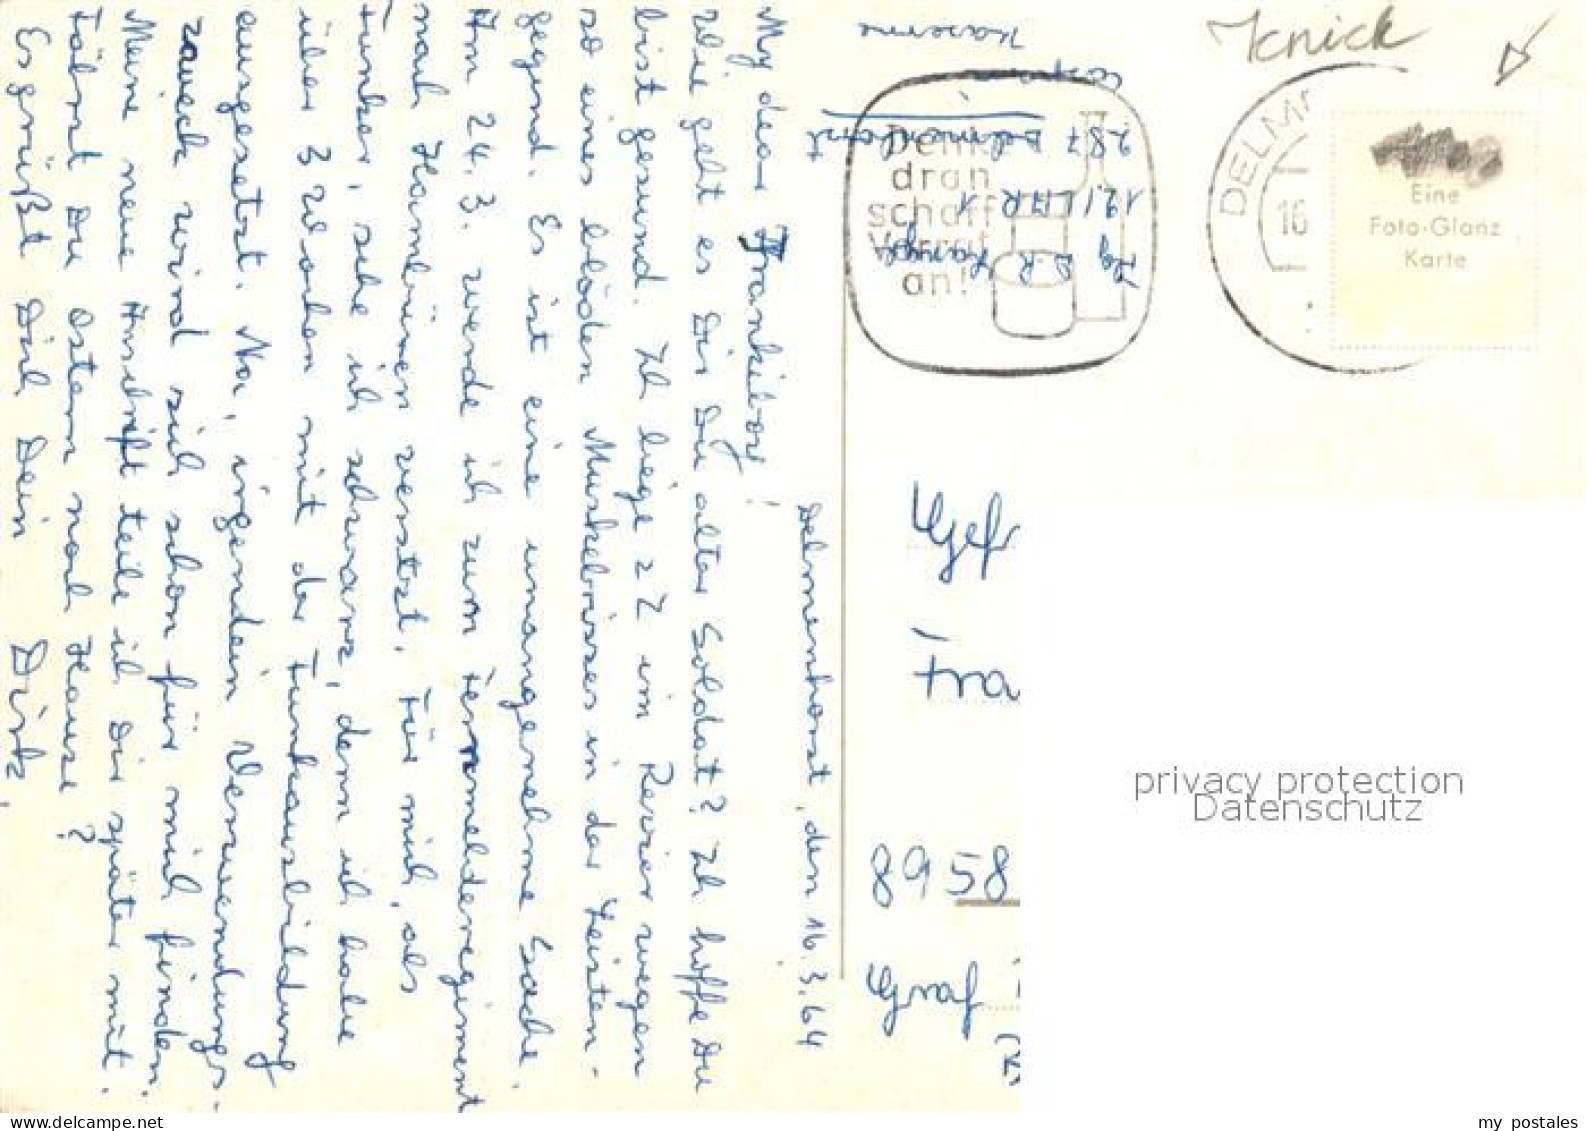 Delmenhorst, den 16.3.64
My dear Frankiboy!
Wie geht es Dir Du alter Soldat? Ich hoffe Du
bist gesund. Ich liege z Z im Revier wegen
so eines blöden Muskelrisses in der Leisten-
gegend. Es ist eine unangenehme Sache.
Am 24.3. werde ich zum Fernmelderegiment
nach Hambüren versetzt. Für mich, als
Funker, sehe ich schwarz, denn ich habe
über 3 Wochen mit der Funkausbildung
ausgesetzt. Na, irgendein Verwendungs-
zweck wird sich schon für mich finden.
Meine neue Anschrift teile ich Dir später mit.
Fährst Du Ostern nach Hause?
Es grüßt Dich Dein Dirk,
Jg D. R.
12./LAR 1
287 Delmenhorst
Kaserne
Denk
dran
schaff
Vorrat
an!
Knick
DELM
16
Eine
Foto-Glanz
Karte
Gefr
Fra
8958
Graf
privacy protection
Datenschutz
my postales
www.ak-ansichtskarten.de